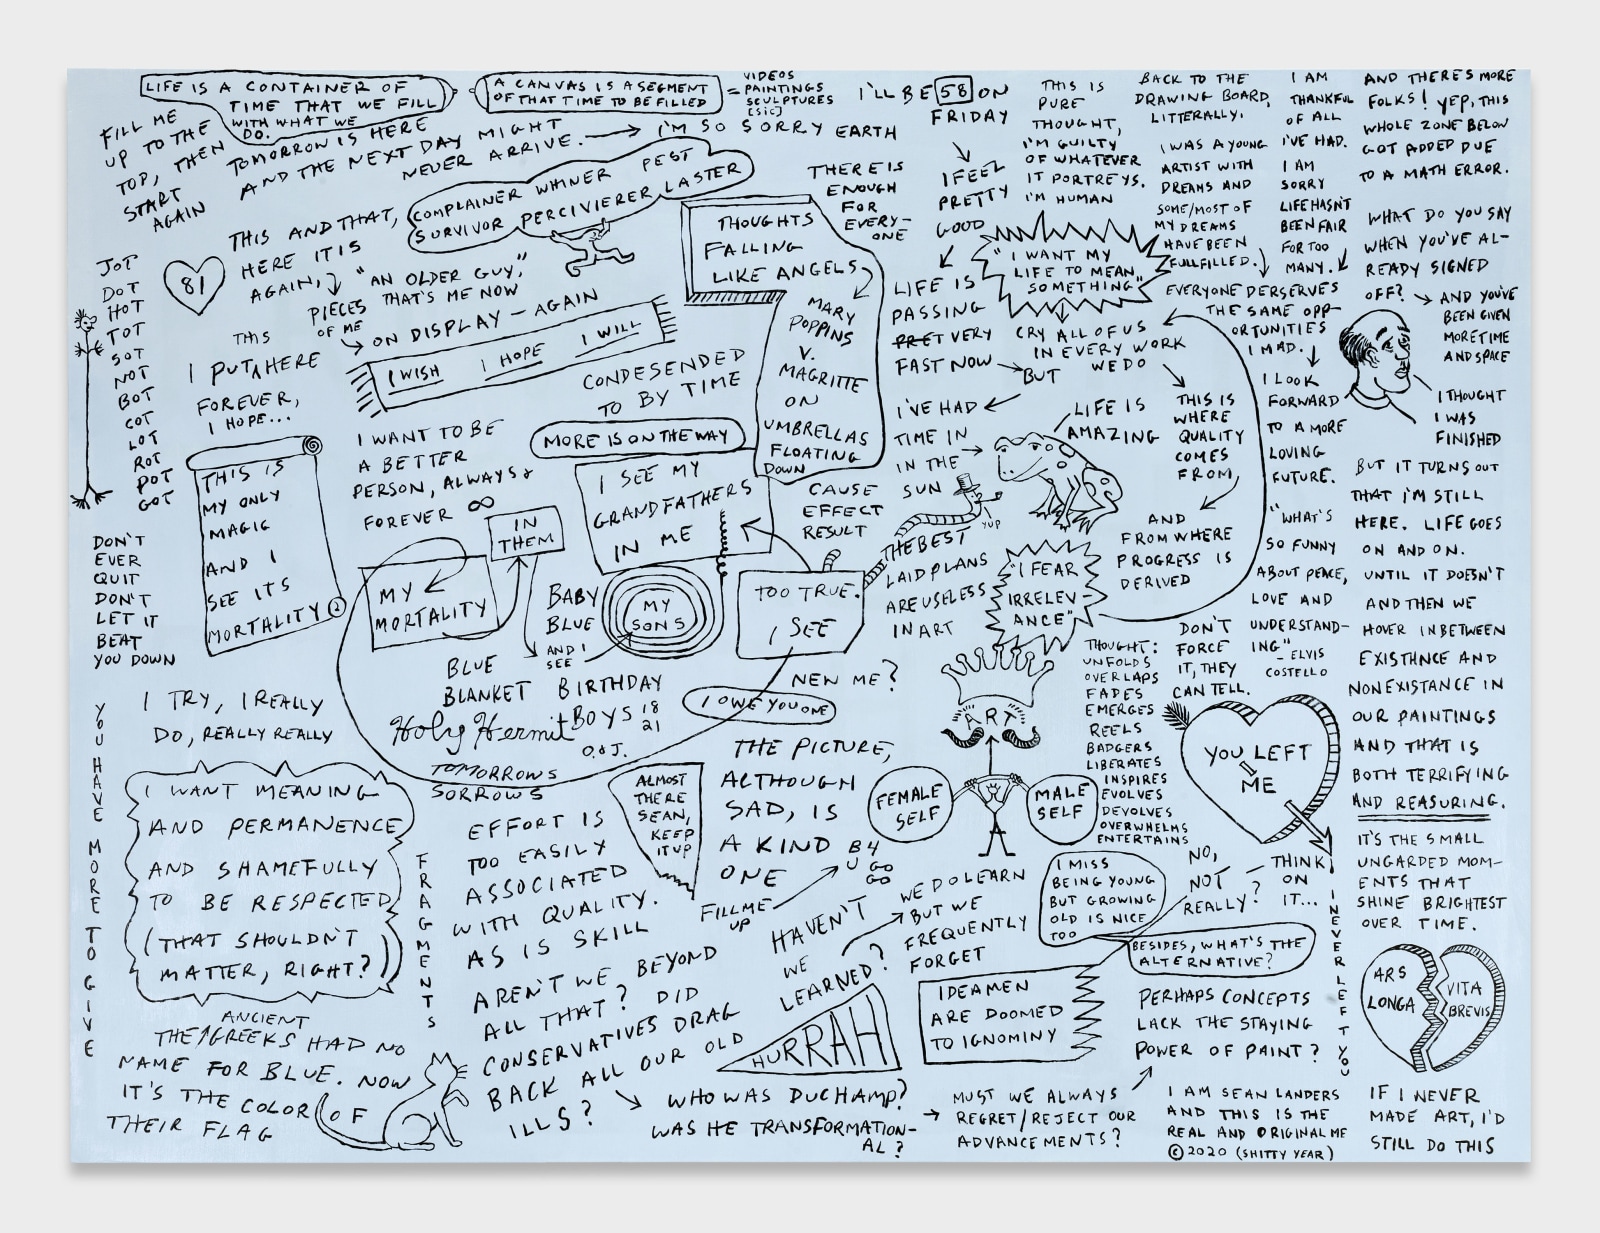 LIFE IS A CONTAINER OF
TIME THAT WE FILL
WITH WHAT WE
DO.
A CANVAS IS A SEGMENT
OF THAT TIME TO BE FILLED
= VIDEOS
PAINTINGS
SCULPTURES
[SIC]
FILL ME
UP TO THE
TOP, THEN
START
AGAIN
TOMORROW IS HERE
AND THE NEXT DAY MIGHT
NEVER ARRIVE. → I'M SO SORRY EARTH
COMPLAINER WHINER PEST
SURVIVOR PERCIVIERER LASTER
THIS AND THAT,
HERE IT IS
AGAIN,
PIECES
OF ME
"AN OLDER GUY,"
THAT'S ME NOW
ON DISPLAY - AGAIN
I WISH I HOPE I WILL
81
JOT
DOT
HOT
TOT
SOT
NOT
BOT
COT
LOT
ROT
POT
GOT
THIS
I PUT ^ HERE
FOREVER,
I HOPE...
THIS IS
MY ONLY
MAGIC
AND I
SEE ITS
MORTALITY
DON'T
EVER
QUIT
DON'T
LET IT
BEAT
YOU DOWN
I TRY, I REALLY
DO, REALLY REALLY
YOU HAVE MORE TO GIVE
I WANT TO BE
A BETTER
PERSON, ALWAYS &
FOREVER ∞
CONDESENDED
TO BY TIME
MORE IS ON THE WAY
THOUGHTS
FALLING
LIKE ANGELS
MARY
POPPINS
V.
MAGRITTE
ON
UMBRELLAS
FLOATING
DOWN
I SEE MY
GRANDFATHERS
IN ME
IN
THEM
MY
MORTALITY
BABY
BLUE
AND I
SEE
MY
SONS
BLUE
BLANKET
BIRTHDAY
BOYS 18
21
O.&J.
Holy Hermit
TOMORROWS
SORROWS
CAUSE
EFFECT
RESULT
TOO TRUE.
I SEE
NEW ME?
I OWE YOU ONE
THE PICTURE,
ALTHOUGH
SAD, IS
A KIND
ONE
B4
U GO
GO
FILL ME
UP
ALMOST
THERE
SEAN,
KEEP
IT UP
I WANT MEANING
AND PERMANENCE
AND SHAMEFULLY
TO BE RESPECTED
(THAT SHOULDN'T
MATTER, RIGHT?)
FRAGMENTS
ANCIENT
THE ^ GREEKS HAD NO
NAME FOR BLUE. NOW
IT'S THE COLOR OF
THEIR FLAG
EFFORT IS
TOO EASILY
ASSOCIATED
WITH QUALITY.
AS IS SKILL
AREN'T WE BEYOND
ALL THAT? DID
CONSERVATIVES DRAG
BACK ALL OUR OLD
ILLS?
WHO WAS DUCHAMP?
WAS HE TRANSFORMATION-
AL?
MUST WE ALWAYS
REGRET/REJECT OUR
ADVANCEMENTS?
HURRAH
HAVEN'T
WE
LEARNED?
WE DO LEARN
BUT WE
FREQUENTLY
FORGET
IDEAMEN
ARE DOOMED
TO IGNOMINY
PERHAPS CONCEPTS
LACK THE STAYING
POWER OF PAINT?
I'LL BE 58 ON
FRIDAY
I FEEL
PRETTY
GOOD
THERE IS
ENOUGH
FOR
EVERY-
ONE
LIFE IS
PASSING
PRET VERY
FAST NOW
BUT
I'VE HAD
TIME IN
IN THE
SUN
YUP
THE BEST
LAID PLANS
ARE USELESS
IN ART
THIS IS
PURE
THOUGHT,
I'M GUILTY
OF WHATEVER
IT PORTREYS.
I'M HUMAN
"I WANT MY
LIFE TO MEAN
SOMETHING"
CRY ALL OF US
IN EVERY WORK
WE DO
LIFE IS
AMAZING
THIS IS
WHERE
QUALITY
COMES
FROM,
AND
FROM WHERE
PROGRESS IS
DERIVED
"I FEAR
IRRELEV-
ANCE"
ART
FEMALE
SELF
MALE
SELF
THOUGHT:
UNFOLDS
OVERLAPS
FADES
EMERGES
REELS
BADGERS
LIBERATES
INSPIRES
EVOLVES
DEVOLVES
OVERWHELMS
ENTERTAINS
I MISS
BEING YOUNG
BUT GROWING
OLD IS NICE
TOO
BESIDES, WHAT'S THE
ALTERNATIVE?
NO,
NOT
REALLY?
THINK
ON
IT...
BACK TO THE
DRAWING BOARD,
LITTERALLY.
I WAS A YOUNG
ARTIST WITH
DREAMS AND
SOME/MOST OF
MY DREAMS
HAVE BEEN
FULLFILLED.
I AM
THANKFUL
OF ALL
I'VE HAD.
I AM
SORRY
LIFE HASN'T
BEEN FAIR
FOR TOO
MANY.
EVERYONE DESERVES
THE SAME OPP-
ORTUNITIES
I MAD.
I LOOK
FORWARD
TO A MORE
LOVING
FUTURE.
"WHAT'S
SO FUNNY
ABOUT PEACE,
LOVE AND
UNDERSTAND-
ING"
- ELVIS
COSTELLO
DON'T
FORCE
IT, THEY
CAN TELL.
YOU LEFT
ME
I NEVER LEFT YOU
AND THERE'S MORE
FOLKS! YEP, THIS
WHOLE ZONE BELOW
GOT ADDED DUE
TO A MATH ERROR.
WHAT DO YOU SAY
WHEN YOU'VE AL-
READY SIGNED
OFF? → AND YOU'VE
BEEN GIVEN
MORE TIME
AND SPACE
I THOUGHT
I WAS
FINISHED
BUT IT TURNS OUT
THAT I'M STILL
HERE. LIFE GOES
ON AND ON.
UNTIL IT DOESN'T
AND THEN WE
HOVER IN BETWEEN
EXISTHNCE AND
NONEXISTANCE IN
OUR PAINTINGS
AND THAT IS
BOTH TERRIFYING
AND REASURING.
IT'S THE SMALL
UNGARDED MOM-
ENTS THAT
SHINE BRIGHTEST
OVER TIME.
ARS
LONGA
VITA
BREVIS
IF I NEVER
MADE ART, I'D
STILL DO THIS
I AM SEAN LANDERS
AND THIS IS THE
REAL AND ORIGINAL ME
© 2020 (SHITTY YEAR)